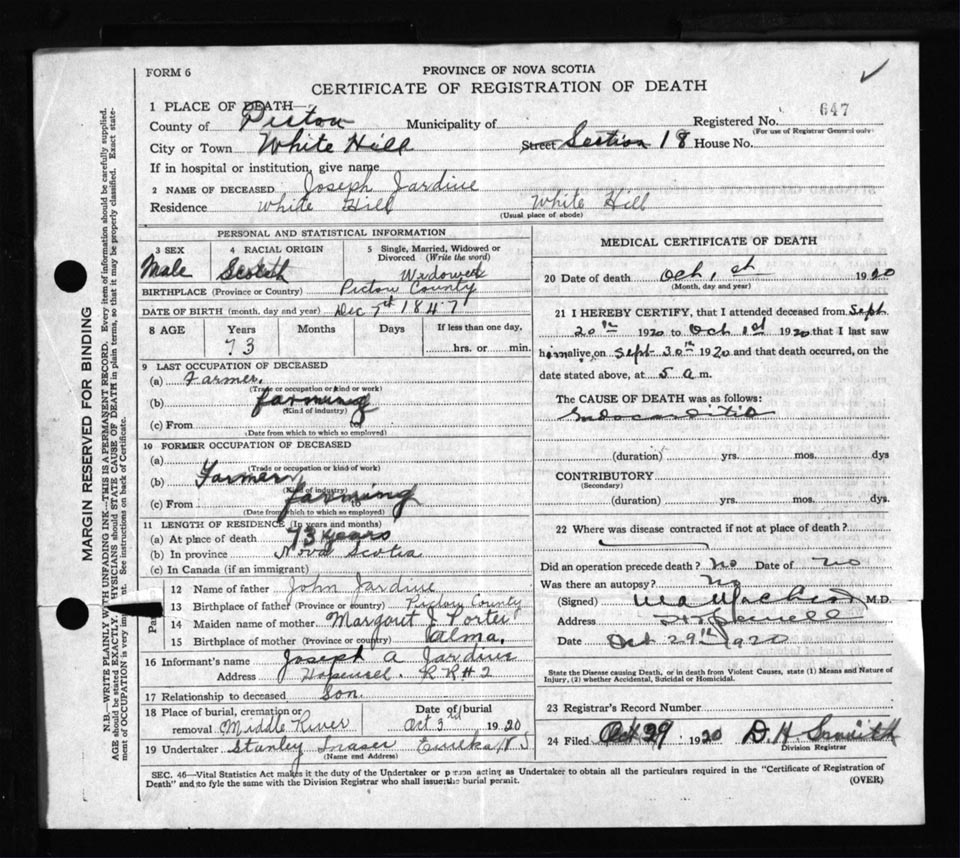 FORM 6
PROVINCE OF NOVA SCOTIA
CERTIFICATE OF REGISTRATION OF DEATH
1 PLACE OF DEATH—
647
County of Pictou Municipality of Registered No.
(For use of Registrar General only)
City or Town White Hill Street Section 18 House No.
If in hospital or institution, give name
2 NAME OF DECEASED Joseph Jardine
Residence White Hill White Hill
(Usual place of abode)
PERSONAL AND STATISTICAL INFORMATION
3 SEX 4 RACIAL ORIGIN 5 Single, Married, Widowed or Divorced (Write the word)
Male Scotch Widowed
BIRTHPLACE (Province or Country) Pictou County
DATE OF BIRTH (month, day and year) Dec 7th 1847
8 AGE Years Months Days If less than one day,
73 hrs. or min.
9 LAST OCCUPATION OF DECEASED
(a) Farmer.
(Trade or occupation or kind or work)
(b) farming
(Kind of industry)
(c) From
(Date from which to which so employed)
10 FORMER OCCUPATION OF DECEASED
(a)
(Trade or occupation or kind of work)
(b) Farmer
(Kind of industry)
farming
(c) From to
(Date from which to which so employed)
11 LENGTH OF RESIDENCE (In years and months)
(a) At place of death 73 years
(b) In province Nova Scotia
(c) In Canada (if an immigrant)
12 Name of father John Jardine
13 Birthplace of father (Province or country) Pictou County
14 Maiden name of mother Margaret J Porter
15 Birthplace of mother (Province or country) Alma.
16 Informant's name Joseph A Jardine
Address Hopewell R R # 2
17 Relationship to deceased Son.
18 Place of burial, cremation or Date of burial
removal Middle River Oct 3rd 1920
19 Undertaker Stanley Fraser Eureka N S
(Name and Address)
MEDICAL CERTIFICATE OF DEATH
20 Date of death Oct, 1st 1920
(Month, day and year)
21 I HEREBY CERTIFY, that I attended deceased from Sept
20th 1920 to Oct 1st 1920 that I last saw
him alive on Sept 30th 1920 and that death occurred, on the
date stated above, at 5 a m.
The CAUSE OF DEATH was as follows:
Endocarditis
(duration) yrs. mos. dys
CONTRIBUTORY
(Secondary)
(duration) yrs. mos. dys.
22 Where was disease contracted if not at place of death?
Did an operation precede death? No Date of No
Was there an autopsy? No
(Signed) M.D.
Address Hopewell
Date Oct 29th 1920
State the Disease causing Death, or in death from Violent Causes, state (1) Means and Nature of
Injury, (2) whether Accidental, Suicidal or Homicidal.
23 Registrar's Record Number
24 Filed Oct 29 1920 D. H. Smith
Division Registrar
SEC. 46—Vital Statistics Act makes it the duty of the Undertaker or person acting as Undertaker to obtain all the particulars required in the "Certificate of Registration of
Death" and to fyle the same with the Division Registrar who shall issue the burial permit.
(OVER)
MARGIN RESERVED FOR BINDING
N.B.—WRITE PLAINLY WITH UNFADING INK—THIS IS A PERMANENT RECORD. Every item of information should be carefully supplied.
AGE should be stated EXACTLY. PHYSICIANS should STATE CAUSE OF DEATH in plain terms, so that it may be properly classified. Exact state-
ment of OCCUPATION is very important. See instructions on back of Certificate.